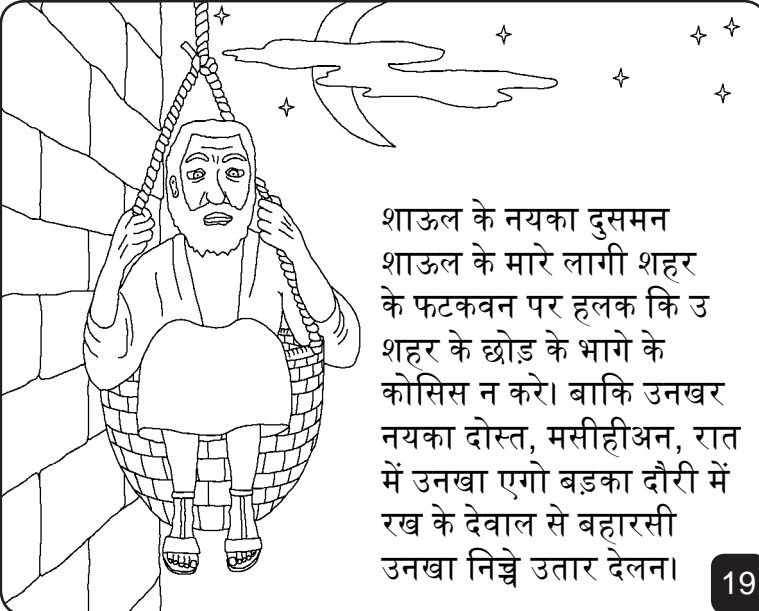 शाऊल के नयका दुसमन
शाऊल के मारे लागी शहर
के फटकवन पर हलक कि उ
शहर के छोड़ के भागे के
कोसिस न करे। बाकि उनखर
नयका दोस्त, मसीहीअन, रात
में उनखा एगो बड़का दौरी में
रख के देवाल से बहारसी
उनखा निच्चे उतार देलन।
19